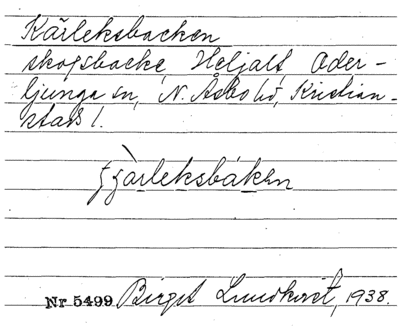 Kärleksbacken
skogsbacke, Heljalt, Oder-
ljunga sn, N. Åsbo hd, Kristian-
stads l.
fjärleksbáken
Nr 5499 Birgit Lundkvist, 1938.